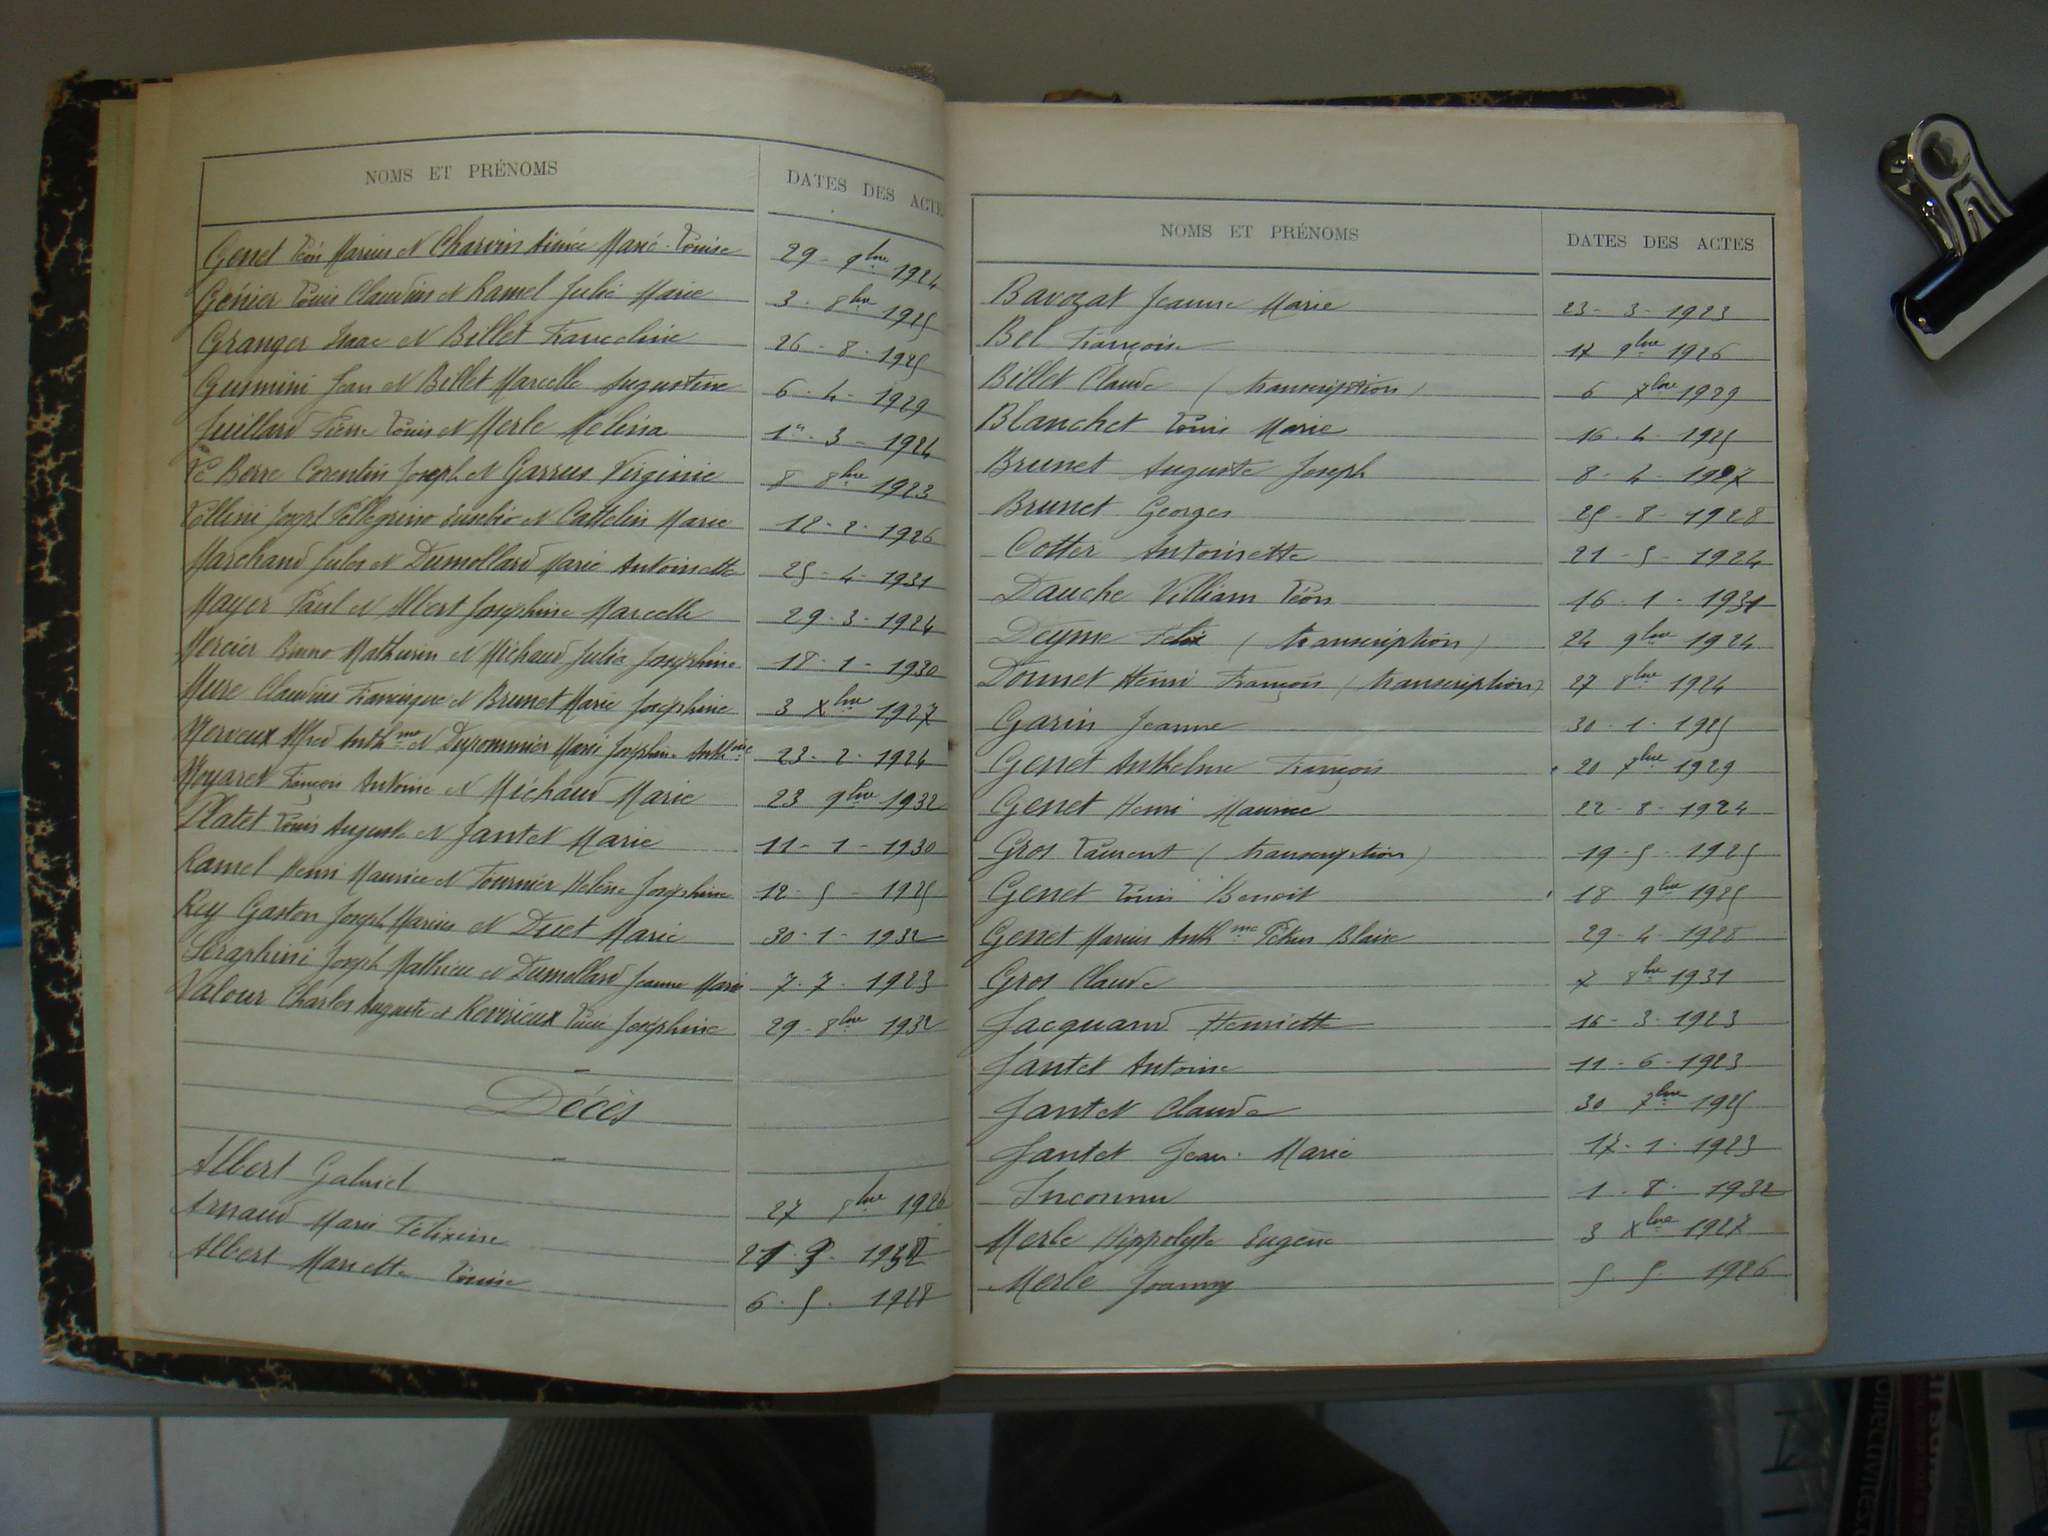 NOMS ET PRÉNOMS DATES DES ACTE
Genet Léon Marius et Charvin Aimée Marie-Louise 29 - 9bre 1924
Génier Louis Claudius et Ramel Julie Marie 3 - 8bre 1925
Granger Isaac et Billet Franceline 26 - 8 - 1925
Gusmini Jean et Billet Marcelle Augustine 6 - 4 - 1929
Juillard Pierre Louis et Merle Mélina 1er - 3 - 1924
Le Berre Corentin Joseph et Garrus Virginie 8 8bre 1923
Lolleni Joseph Pellegrino Eusebio et Cattelin Marie 12 - 2 - 1926
Marchand Jules et Dumollard Marie Antoinette 25 - 4 - 1931
Mayer Paul et Albert Joséphine Marcelle 29 - 3 - 1924
Mercier Bruno Mathurin et Michaud Julie Joséphine 18 - 1 - 1930
Mure Claudius Francisque et Brunet Marie Joséphine 3 Xbre 1927
Morveux Alfred Anthme et Dupommier Marie Joséphine Anthoine 23 - 2 - 1924
Noyaret François Antoine et Michaud Marie 23 9bre 1932
Platet Louis Auguste et Jantet Marie 11 - 1 - 1930
Ramel Henri Maurice et Fournier Hélène Joséphine 12 - 5 - 1925
Rey Gaston Joseph Marius et Ducet Marie 30 - 1 - 1932
Seraphini Joseph Mathieu et Dumollard Jeanne Marie 7 . 7 . 1923
Valour Charles Auguste et Revirieux Lucie Joséphine 29 - 8bre 1932
Décès
Albert Gabriel 27 8bre 1926
Arnaud Marie Félixine
Albert Mariette Louise 6 . 5 . 1928
NOMS ET PRÉNOMS DATES DES ACTES
Bavozat Jeanne Marie 23 - 3 - 1923
Bel Françoise 17 9bre 1926
Billet Claude (transcription) 6 7bre 1929
Blanchet Louis Marie 16 - 4 - 1925
Brunet Auguste Joseph 8 - 4 - 1927
Brunet Georges 25 - 8 - 1928
Cotter Antoinette 21 - 5 - 1924
Dauche Villiam Léon 16 - 1 - 1931
Deyme Félix (transcription) 24 9bre 1924
Donnet Henri François (transcription) 27 8bre 1924
Garin Jeanne 30 - 1 - 1925
Genet Anthelme François 20 7bre 1929
Genet Henri Maurice 22 - 8 - 1924
Gros Laurent (transcription) 19 - 5 - 1925
Genet Louis Benoit 18 9bre 1925
Genet Marius Anthme Petrus Blaise 29 - 4 - 1928
Gros Claude 7 8bre 1931
Jacquand Henriette 16 - 3 - 1923
Jantet Antoine 11 - 6 - 1923
Jantet Claude 30 7bre 1925
Jantet Jean-Marie 17 - 1 - 1923
Inconnu 1 - 8 - 1932
Merle Hippolyte Eugène 3 Xbre 1927
Merle Joanny 5 . 5 . 1926